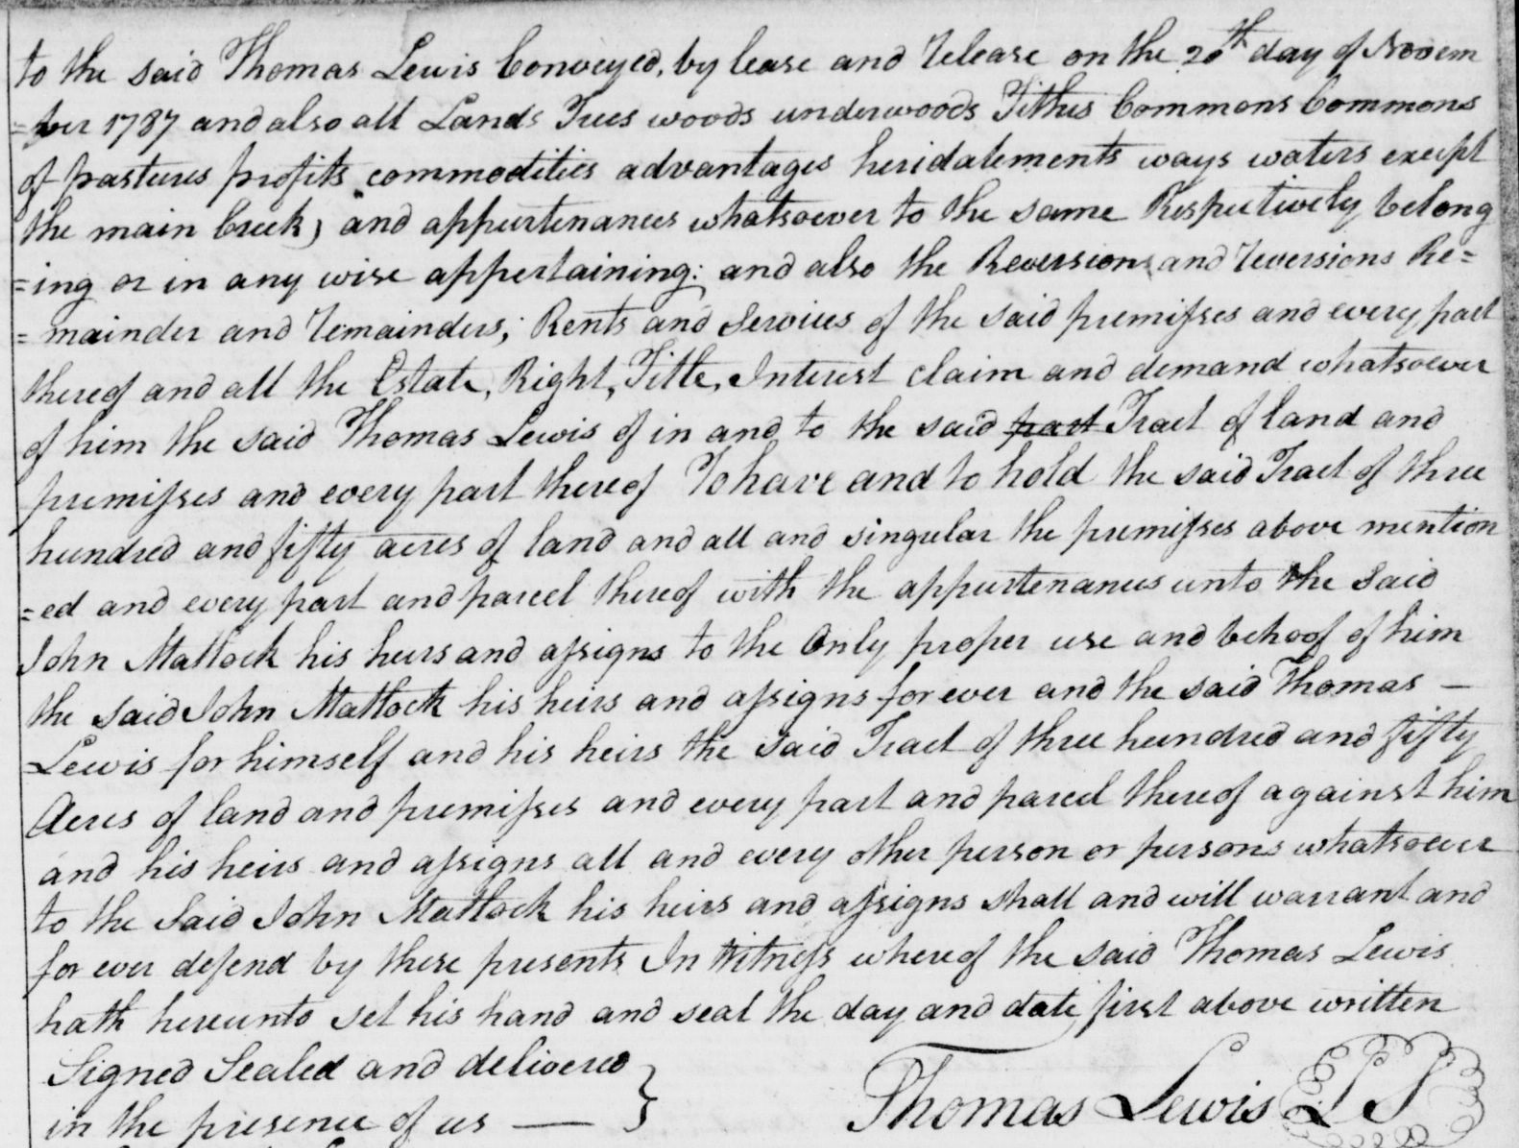 to the said Thomas Lewis Conveyed, by lease and Release on the 20th day of Novem
=ber 1787 and also all Lands Trees woods underwoods Tithes Commons Commons
of pastures profits commodities advantages heridatements ways waters except
the main Creek) and appurtenances whatsoever to the same Respectively belong
=ing or in any wise appertaining: and also the Reversion and reversions Re=
=mainder and remainders; Rents and Services of the said premisses and every part
thereof and all the Estate, Right, Title, Interest claim and demand whatsoever
of him the said Thomas Lewis of in and to the said part Tract of land and
premisses and every part thereof To have and to hold the said Tract of three
hundred and fifty acres of land and all and singular the premisses above mention
=ed and every part and parcel thereof with the appurtenances unto the said
John Matlock his heirs and assigns to the Only proper use and behoof of him
the said John Matlock his heirs and assigns for ever and the said Thomas —
Lewis for himself and his heirs the said Tract of three hundred and fifty
Acres of land and premisses and every part and parcel thereof against him
and his heirs and assigns all and every other person or persons whatsoever
to the Said John Matlock his heirs and assigns shall and will warrant and
for ever defend by these presents In Witness whereof the said Thomas Lewis
hath hereunto set his hand and seal the day and date first above written
Signed Sealed and delivered
in the presence of us — }
Thomas Lewis L S